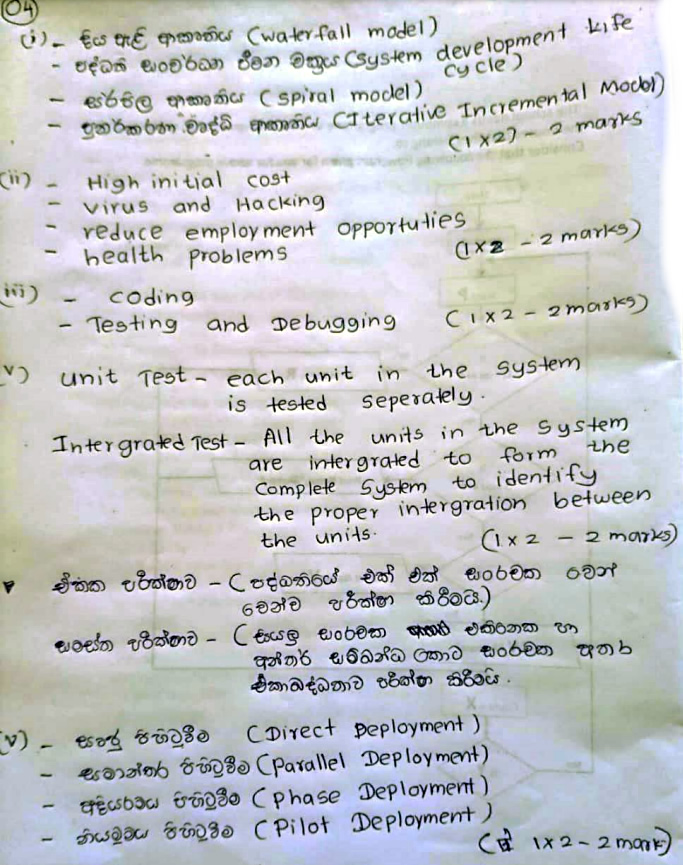 04
(i) - දිය ඇලි ආකෘතිය (waterfall model)
- පද්ධති සංවර්ධන ජීවන චක්‍රය (System development Life
cycle)
- සර්පිල ආකෘතිය (spiral model)
- පුනර්කරන වෘද්ධි ආකෘතිය (Iterative Incremental Model)
(1x2) - 2 marks
(ii) - High initial cost
- Virus and Hacking
- reduce employment opportuties
- health problems (1x2 - 2 marks)
iii) - coding
- Testing and Debugging (1x2 - 2 marks)
v) unit Test - each unit in the system
is tested seperately.
Intergrated Test - All the units in the system
are intergrated to form the
complete system to identify
the proper intergration between
the units. (1x2 - 2 marks)
ඒකක පරීක්ෂාව - (පද්ධතියේ එක් එක් සංරචක වෙන්
වෙන්ව පරීක්ෂා කිරීමයි.)
සමස්ත පරීක්ෂාව - (සියලු සංරචක එකිනෙක හා
අන්තර් සම්බන්ධ කොට සංරචක අතර
ඒකාබද්ධතාව පරීක්ෂා කිරීමයි.
(v) - සෘජු පිහිටුවීම (Direct Deployment)
- සමාන්තර පිහිටුවීම (Parallel Deployment)
- අදියරමය පිහිටුවීම (Phase Deployment)
- නියමුමය පිහිටුවීම (Pilot Deployment)
(1x2 - 2 mark)